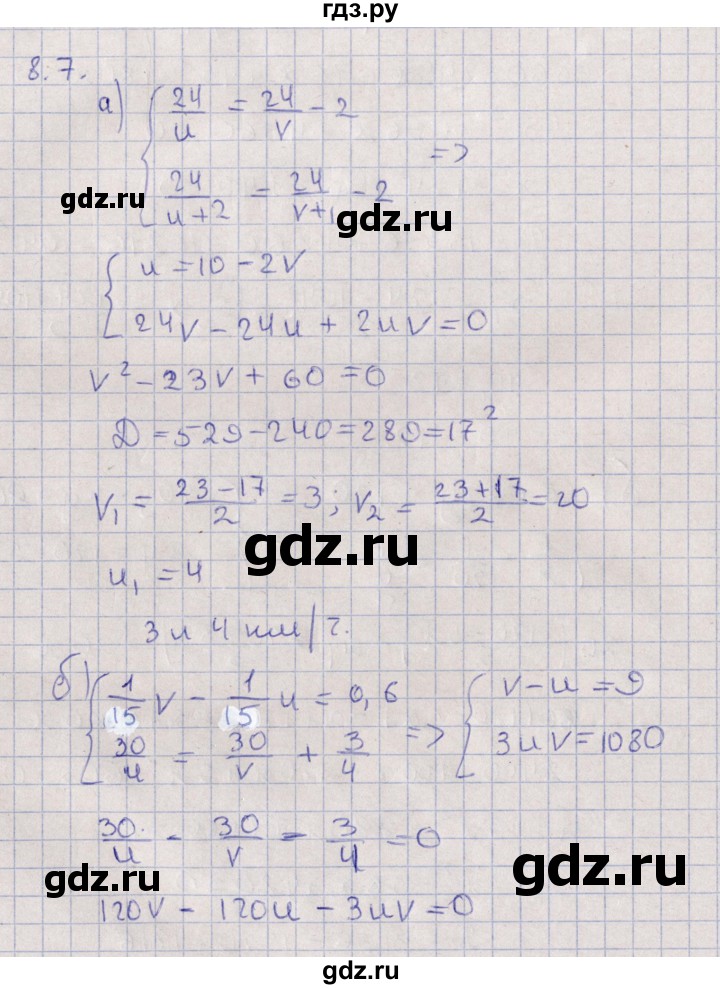 гдз.ру
8.7.
а) { 24/u = 24/v - 2
gdz.ru
24/u+2 = 24/v+1 - 2 =>
gdz.ru
{ u = 10 - 2v
24v - 24u + 2uv = 0
v² - 23v + 60 = 0
Д = 529 - 240 = 289 = 17²
v₁ = 23-17/2 = 3; v₂ = 23+17/2 = 20
gdz.ru
u₁ = 4
3 и 4 км/ч.
б) { 1/15 v - 1/15 u = 0,6
30/u = 30/v + 3/4
=> { v - u = 9
3uv = 1080
30/u - 30/v - 3/4 = 0
gdz.ru
gdz.ru
120v - 120u - 3uv = 0
gdz.ru